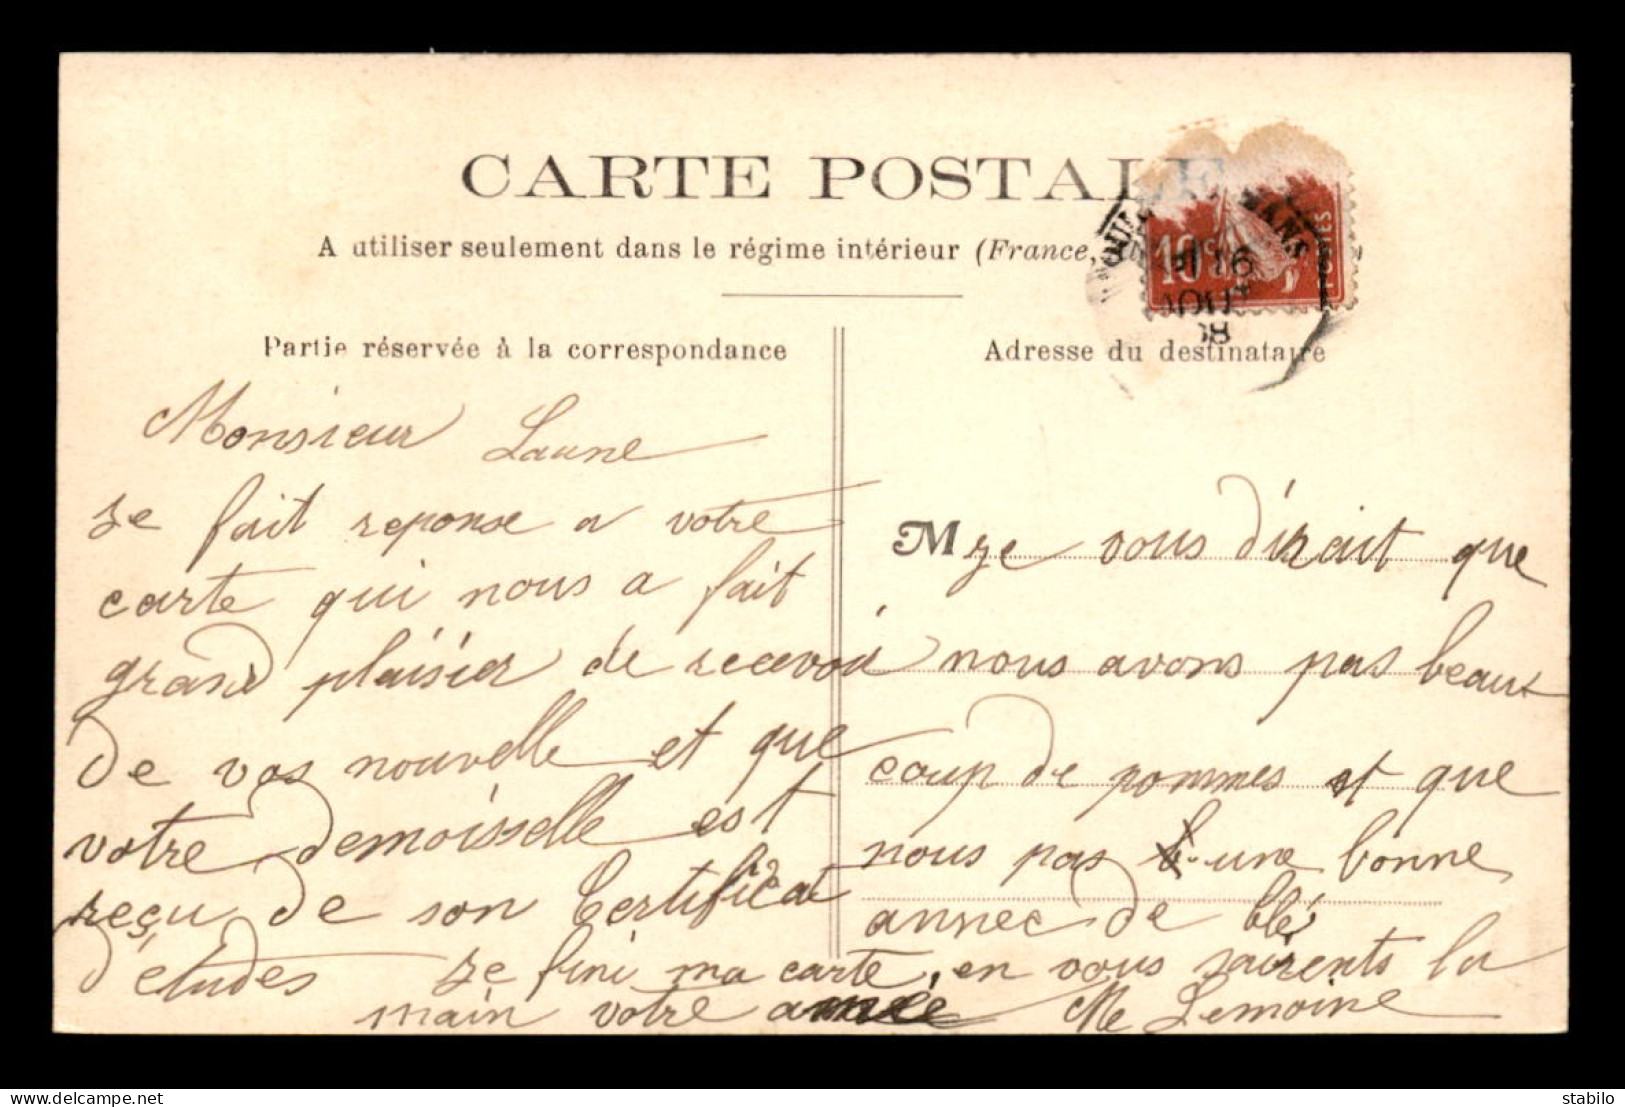 CARTE POSTALE
A utiliser seulement dans le régime intérieur (France,
10c
POSTES
16
AOUT
08
Partie réservée à la correspondance
Adresse du destinataire
Monsieur Laune
Je fait reponse a votre
carte qui nous a fait
grand plaisir de recevoir
de vos nouvelle et que
votre demoisselle est
reçu de son Certificat
d'etudes
M je vous dirait que
nous avons pas beaux
coup de pommes et que
nous pas une bonne
annee de blé
Je fini ma carte, en vous sairents la
main votre amie Me Lemoine
delcampe.net
stabilo